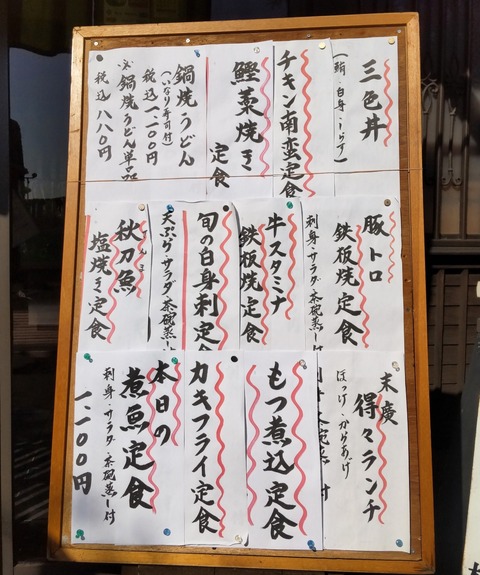 三色丼
（鮪・白身・しらす）
チキン南蛮定食
鰹藁焼き
定食
鍋焼うどん
（いなり寿司付）
税込一、一〇〇円
鍋焼うどん単品
税込八八〇円
豚トロ
鉄板焼定食
刺身・サラダ・茶碗蒸し付
牛スタミナ
鉄板焼定食
旬の白身刺定食
天ぷら・サラダ・茶碗蒸し付
さんま
秋刀魚
塩焼き定食
末廣
得々ランチ
ほっけ・からあげ
もつ煮込定食
カキフライ定食
本日の
煮魚定食
刺身・サラダ・茶碗蒸し付
一、二〇〇円